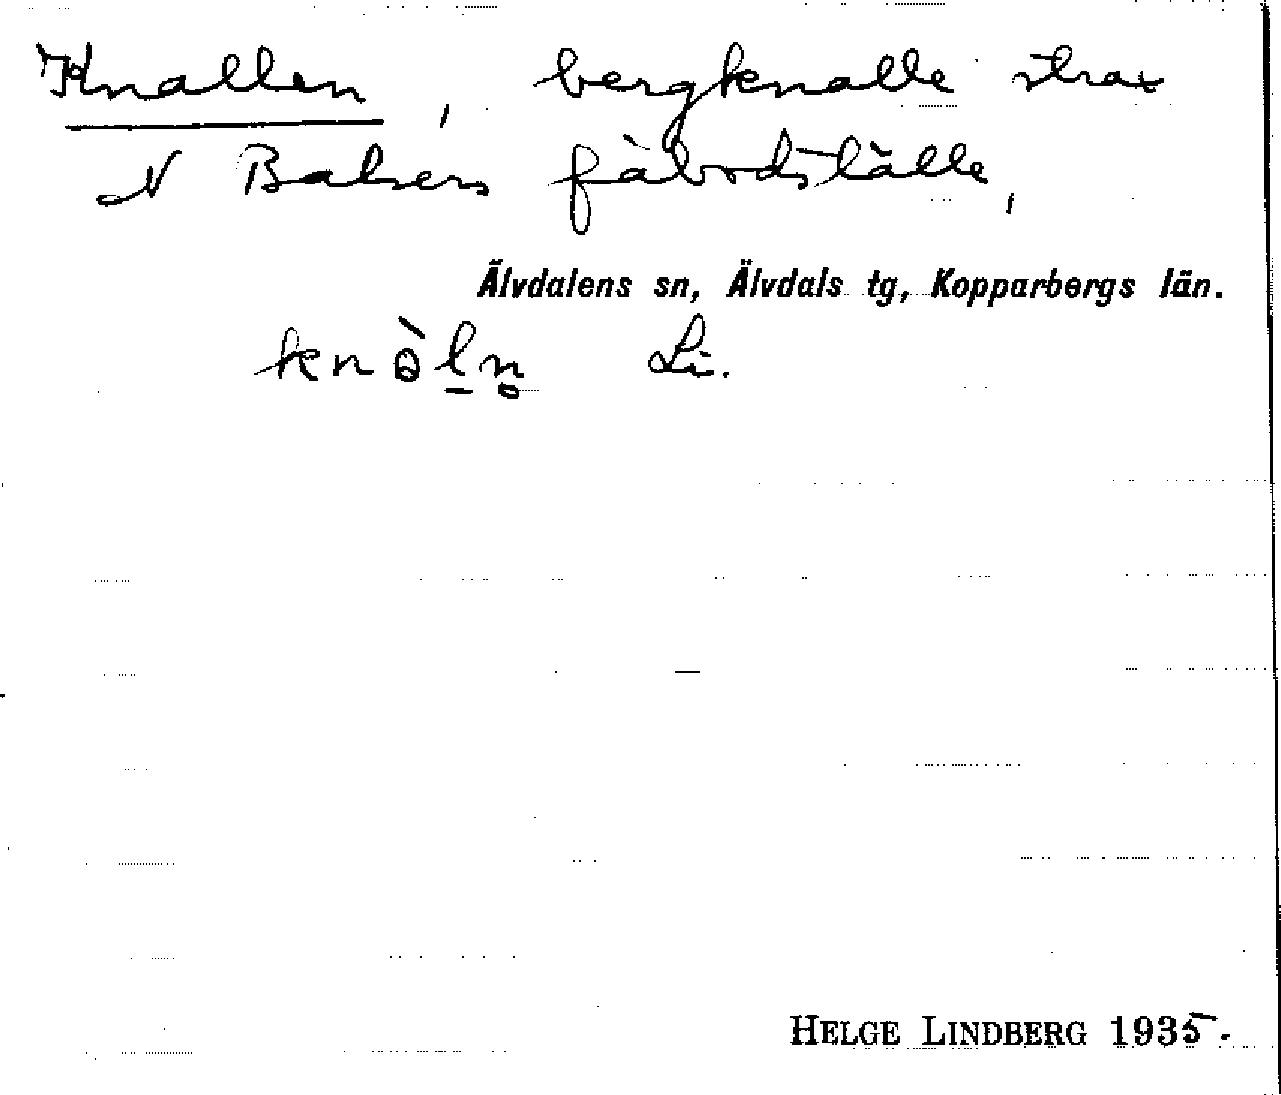 Knallen, bergknalle strax
N Balsers fäbodställe,
Älvdalens sn, Älvdals tg, Kopparbergs län.
knò̱ḻn̥ Li.
HELGE LINDBERG 1935.